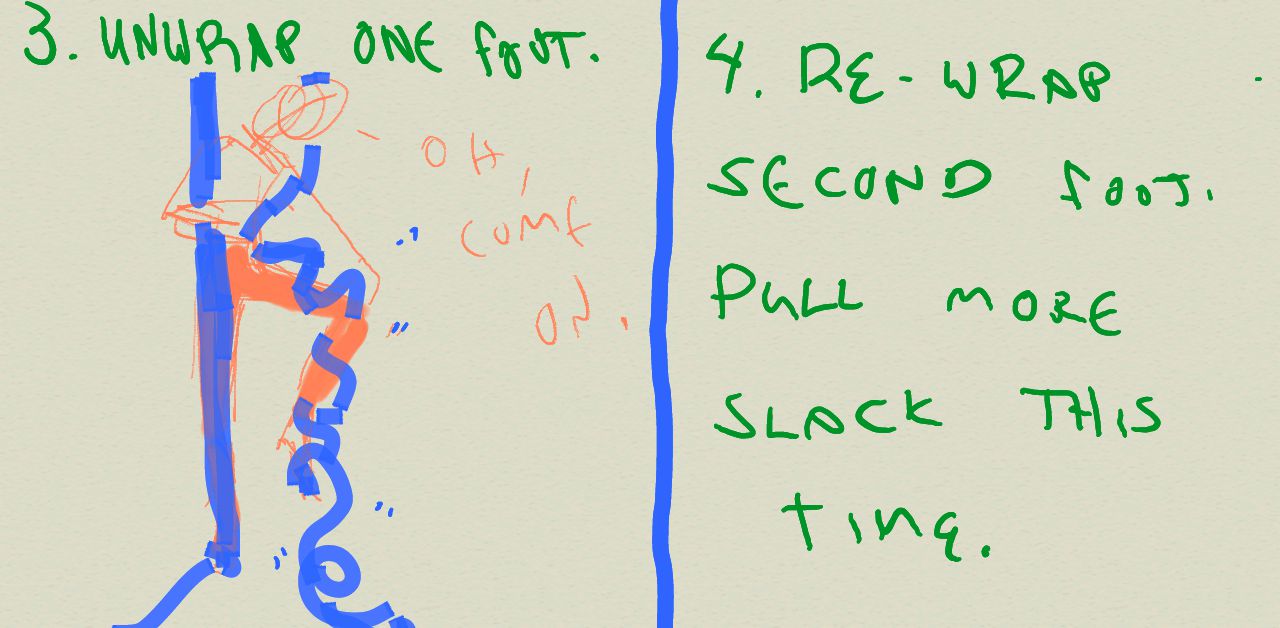 3. UNWRAP ONE fOOT.
- OH,
COME
ON.
4. RE-WRAP
SECOND fOOT.
PULL MORE
SLACK THIS
TIME.